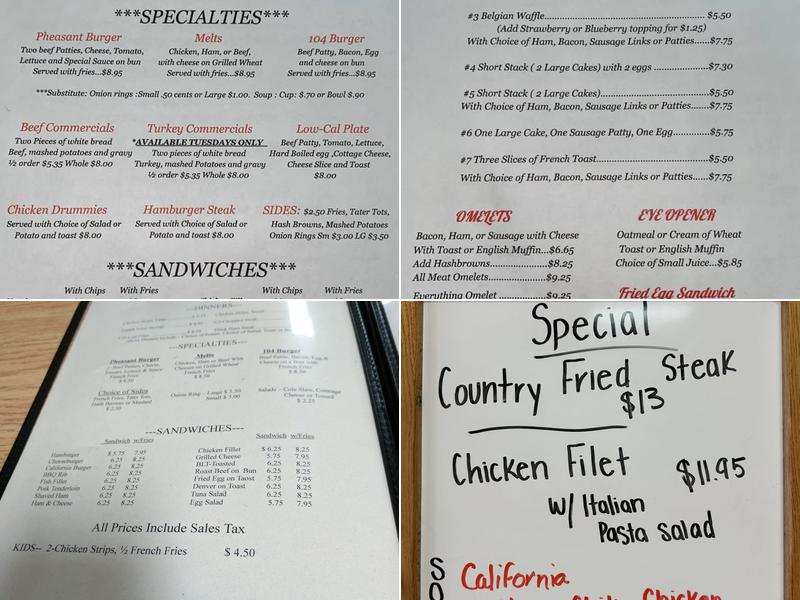 ***SPECIALTIES***
Pheasant Burger
Two beef Patties, Cheese, Tomato,
Lettuce and Special Sauce on bun
Served with fries...$8.95
Melts
Chicken, Ham, or Beef,
with cheese on Grilled Wheat
Served with fries...$8.95
104 Burger
Beef Patty, Bacon, Egg
and cheese on bun
Served with fries...$8.95
***Substitute: Onion rings :Small .50 cents or Large $1.00. Soup : Cup: $.70 or Bowl $.90
Beef Commercials
Two Pieces of white bread
Beef, mashed potatoes and gravy
½ order $5.35 Whole $8.00
Turkey Commercials
*AVAILABLE TUESDAYS ONLY
Two pieces of white bread
Turkey, mashed Potatoes and gravy
½ order $5.35 Whole $8.00
Low-Cal Plate
Beef Patty, Tomato, Lettuce,
Hard Boiled egg ,Cottage Cheese,
Cheese Slice and Toast
$8.00
Chicken Drummies
Served with Choice of Salad or
Potato and toast $8.00
Hamburger Steak
Served with Choice of Salad or
Potato and toast $8.00
SIDES: $2.50 Fries, Tater Tots,
Hash Browns, Mashed Potatoes
Onion Rings Sm $3.00 LG $3.50
***SANDWICHES***
With Chips With Fries With Chips With Fries
#3 Belgian Waffle... $5.50
(Add Strawberry or Blueberry topping for $1.25)
With Choice of Ham, Bacon, Sausage Links or Patties......$7.75
#4 Short Stack ( 2 Large Cakes) with 2 eggs ...$7.30
#5 Short Stack ( 2 Large Cakes)...$5.50
With Choice of Ham, Bacon, Sausage Links or Patties......$7.75
#6 One Large Cake, One Sausage Patty, One Egg...$5.75
#7 Three Slices of French Toast...$5.50
With Choice of Ham, Bacon, Sausage Links or Patties......$7.75
OMELETS
Bacon, Ham, or Sausage with Cheese
With Toast or English Muffin...$6.65
Add Hashbrowns...$8.25
All Meat Omelets...$9.25
Everything Omelet ...$9.25
EYE OPENER
Oatmeal or Cream of Wheat
Toast or English Muffin
Choice of Small Juice...$5.85
Fried Egg Sandwich
---DINNERS---
---SPECIALTIES---
Pheasant Burger
2- Beef Patties, Cheese,
Tomato, Lettuce & Sauce
French Fries
$ 8.50
Melts
Chicken, Ham or Beef With
Cheese on Grilled Wheat
French Fries
$ 8.50
104 Burger
Beef Patty, Bacon, Egg &
Cheese on a Bun with
French Fries
$ 8.50
Choice of Sides
French Fries, Tater Tots,
Hash Browns or Mashed
$ 2.50
Onion Ring – Large $ 3.50
Small $ 3.00
Salads – Cole Slaw, Cottage
Cheese or Tossed
$ 2.25
---SANDWICHES---
Sandwich w/Fries
Hamburger $ 5.75 7.95
Cheeseburger 6.25 8.25
California Burger 6.25 8.25
BBQ Rib 6.25 8.25
Fish Fillet 6.25 8.25
Pork Tenderloin 6.25 8.25
Shaved Ham 6.25 8.25
Ham & Cheese 6.25 8.25
Sandwich w/Fries
Chicken Fillet $ 6.25 8.25
Grilled Cheese 5.75 7.95
BLT-Toasted 6.25 8.25
Roast Beef on Bun 6.25 8.25
Fried Egg on Taost 5.75 7.95
Denver on Toast 6.25 8.25
Tuna Salad 6.25 8.25
Egg Salad 5.75 7.95
All Prices Include Sales Tax
KIDS-- 2-Chicken Strips, ½ French Fries $ 4.50
Special
Country Fried Steak
$13
Chicken Filet $11.95
w/ Italian
Pasta Salad
S California
O Chicken